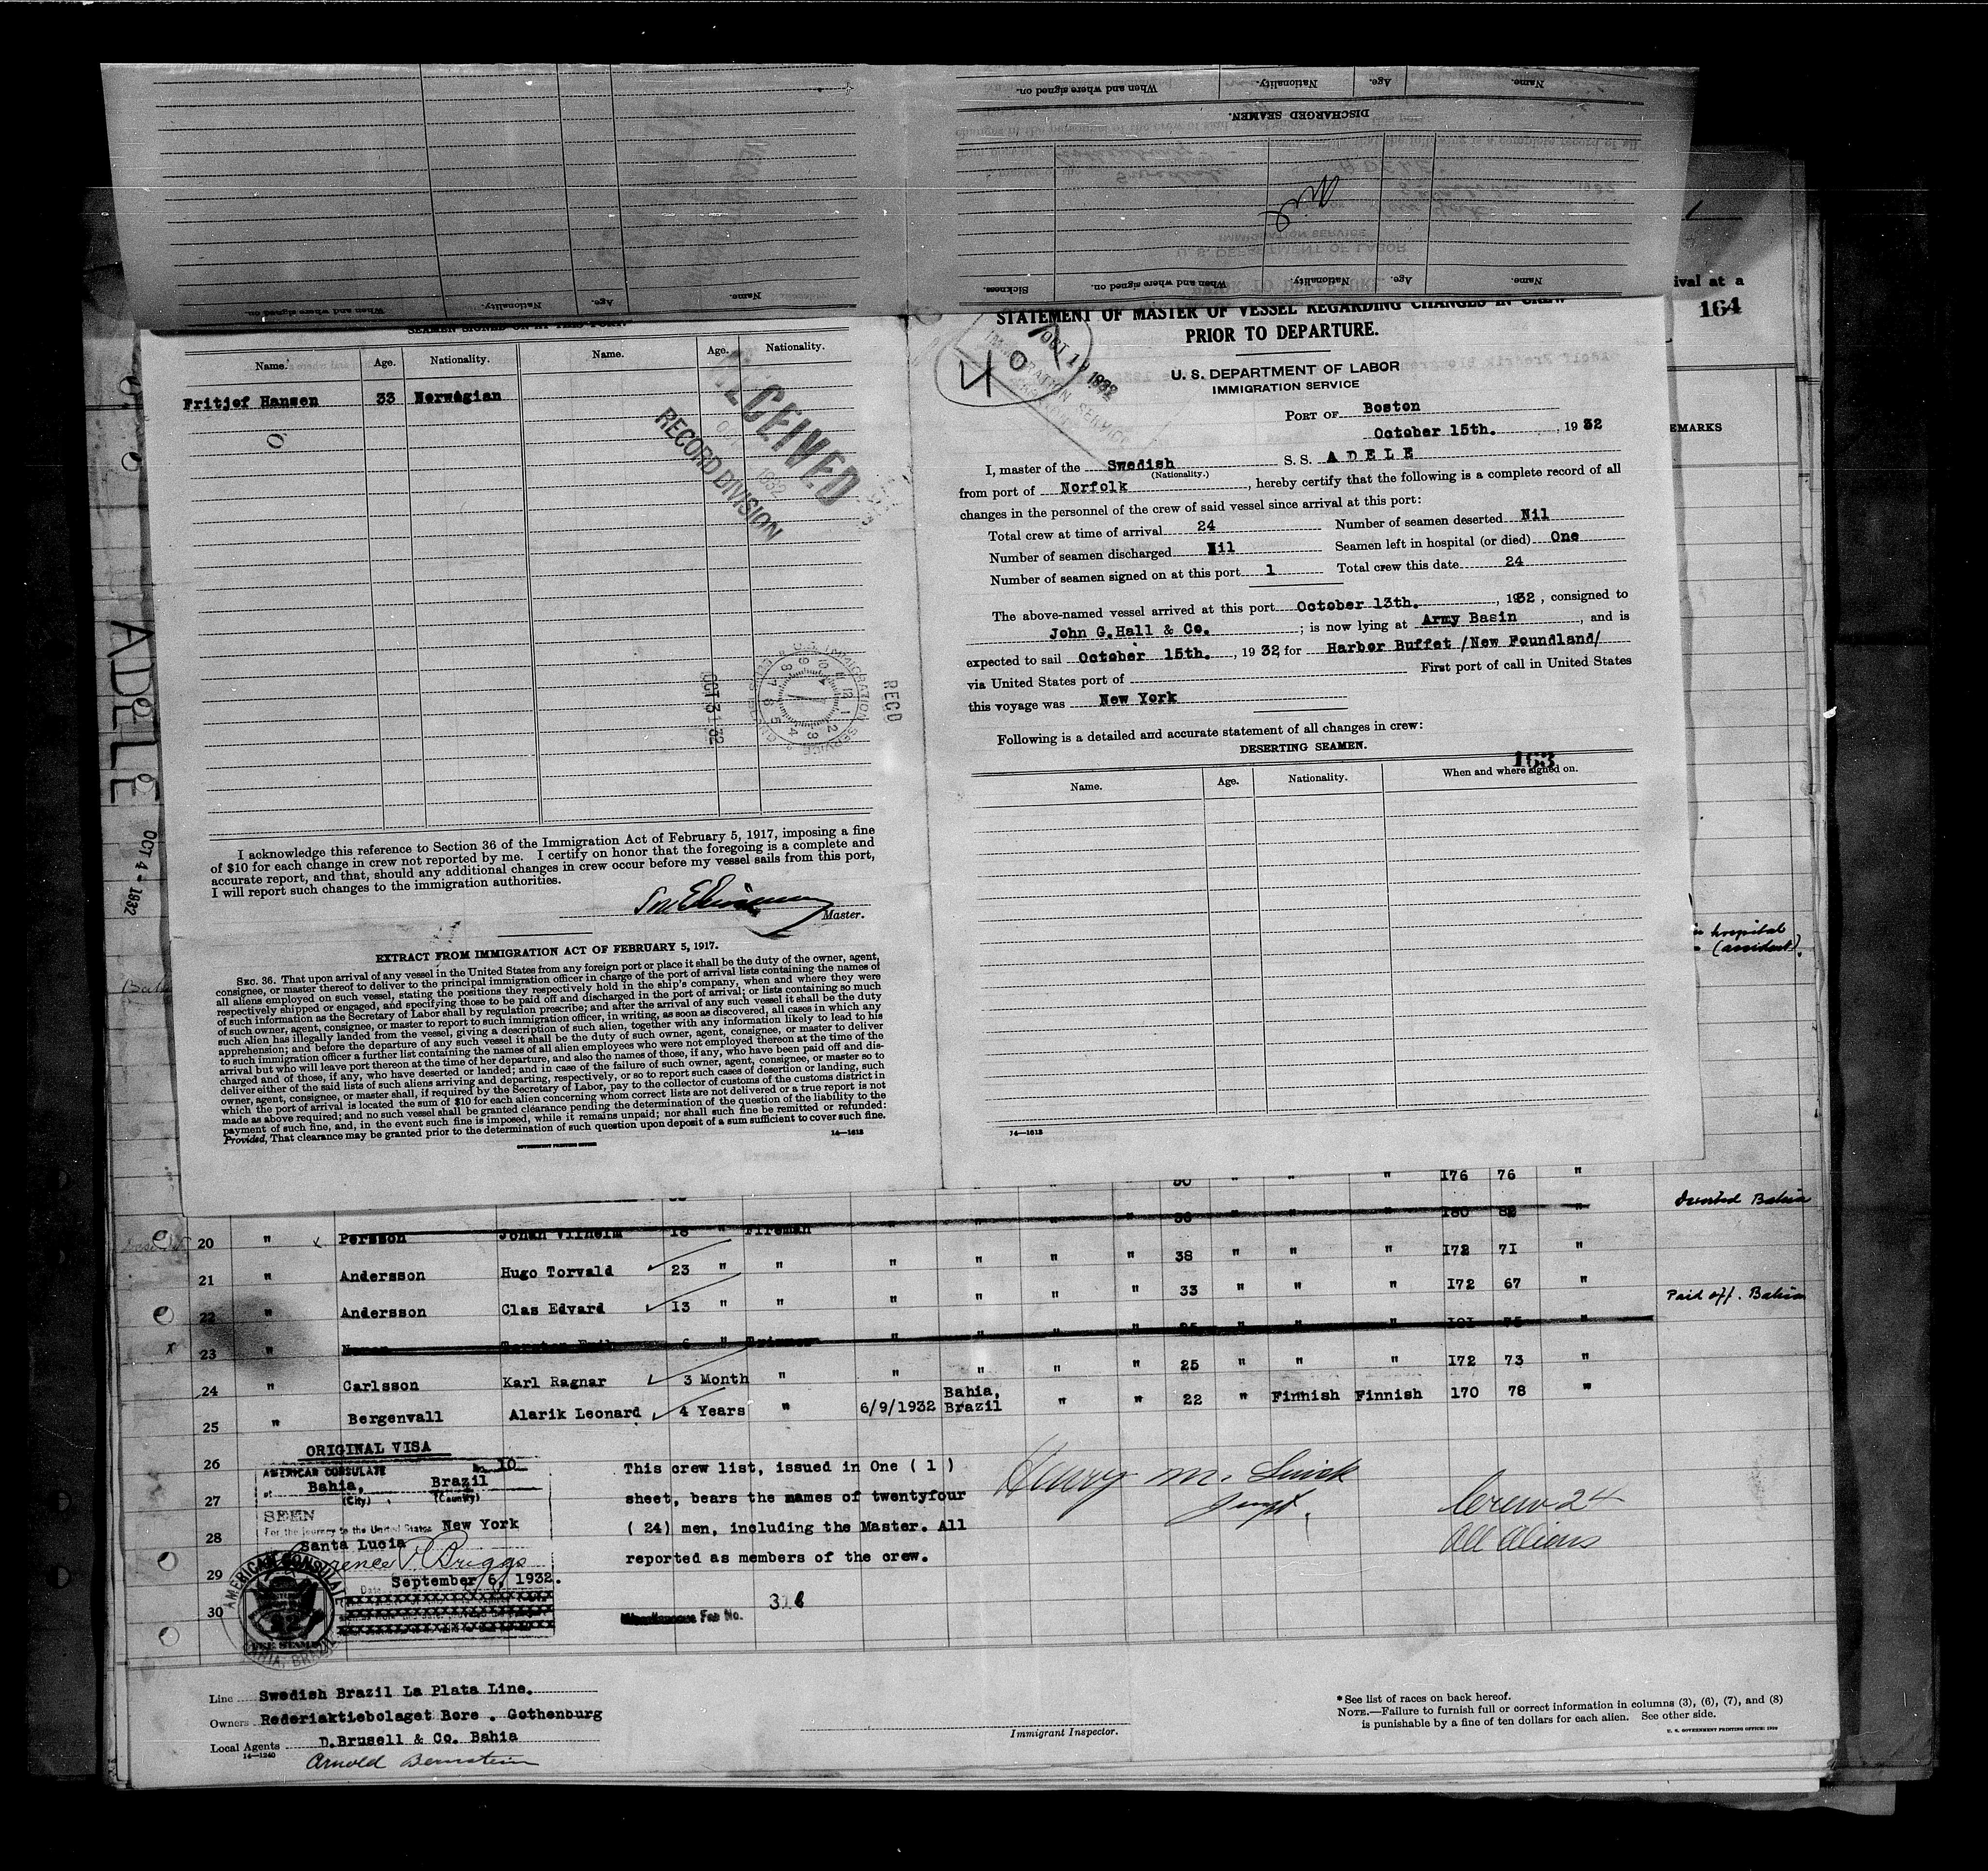 ival at a
164
EMARKS
When and where signed on.
Nationality.
Age.
Name.
DISCHARGED SEAMEN.
Sickness.
When and where signed on.
Nationality.
Age.
Name.
When and where signed on.
Nationality.
Age.
Name.
SEAMEN SIGNED ON AT THIS PORT.
Name.
Age.
Nationality.
Name.
Age.
Nationality.
Fritjof Hansen 33 Norwegian
RECEIVED
1932
RECORD DIVISION
OCT 31 32
RECD
IMMIGRATION SERVICE
I acknowledge this reference to Section 36 of the Immigration Act of February 5, 1917, imposing a fine
of $10 for each change in crew not reported by me. I certify on honor that the foregoing is a complete and
accurate report, and that, should any additional changes in crew occur before my vessel sails from this port,
I will report such changes to the immigration authorities.
Master.
EXTRACT FROM IMMIGRATION ACT OF FEBRUARY 5, 1917.
SEC. 36. That upon arrival of any vessel in the United States from any foreign port or place it shall be the duty of the owner, agent,
consignee, or master thereof to deliver to the principal immigration officer in charge of the port of arrival lists containing the names of
all aliens employed on such vessel, stating the positions they respectively hold in the ship's company, when and where they were
respectively shipped or engaged, and specifying those to be paid off and discharged in the port of arrival; or lists containing so much
of such information as the Secretary of Labor shall by regulation prescribe; and after the arrival of any such vessel it shall be the duty
of such owner, agent, consignee, or master to report to such immigration officer, in writing, as soon as discovered, all cases in which any
such Alien has illegally landed from the vessel, giving a description of such alien, together with any information likely to lead to his
apprehension; and before the departure of any such vessel it shall be the duty of such owner, agent, consignee, or master to deliver
to such immigration officer a further list containing the names of all alien employees who were not employed thereon at the time of the
arrival but who will leave port thereon at the time of her departure, and also the names of those, if any, who have been paid off and dis-
charged and of those, if any, who have deserted or landed; and in case of the failure of such owner, agent, consignee, or master so to
deliver either of the said lists of such aliens arriving and departing, respectively, or so to report such cases of desertion or landing, such
owner, agent, consignee, or master shall, if required by the Secretary of Labor, pay to the collector of customs of the customs district in
which the port of arrival is located the sum of $10 for each alien concerning whom correct lists are not delivered or a true report is not
made as above required; and no such vessel shall be granted clearance pending the determination of the question of the liability to the
payment of such fine, and, in the event such fine is imposed, while it remains unpaid; nor shall such fine be remitted or refunded:
Provided, That clearance may be granted prior to the determination of such question upon deposit of a sum sufficient to cover such fine.
GOVERNMENT PRINTING OFFICE
14—1613
STATEMENT OF MASTER OF VESSEL REGARDING CHANGES IN CREW
PRIOR TO DEPARTURE.
OCT 19 1932
IMMIGRATION SERVICE
U. S. DEPARTMENT OF LABOR
IMMIGRATION SERVICE
PORT OF Boston
October 15th. , 19 32
I, master of the Swedish S. S. ADELE
(Nationality.)
from port of Norfolk , hereby certify that the following is a complete record of all
changes in the personnel of the crew of said vessel since arrival at this port:
Total crew at time of arrival 24 Number of seamen deserted Nil
Number of seamen discharged Nil Seamen left in hospital (or died) One
Number of seamen signed on at this port 1 Total crew this date 24
The above-named vessel arrived at this port October 13th. , 1932 , consigned to
John G.Hall & Co. ; is now lying at Army Basin , and is
expected to sail October 15th. , 19 32, for Harbor Buffet /New Foundland/
via United States port of First port of call in United States
this voyage was New York
Following is a detailed and accurate statement of all changes in crew:
DESERTING SEAMEN.
163
Name. Age. Nationality. When and where signed on.
14—1613
ADELE
OCT 4 - 1932
hospital
(accident).
176 76 "
20 " Persson Johan Vilhelm 18 " Fireman " " " " 36 " " " 180 82 " deserted Bahia
21 " Andersson Hugo Torvald 23 " " " " " " 38 " " " 172 71 "
22 " Andersson Clas Edvard 13 " " " " " " 33 " " " 172 67 "
23 " Torsten Emil 6 " Trimmer " " " " " " " 75 " Paid off. Bahia
24 " Carlsson Karl Ragnar 3 Month " " " " " 25 " " " 172 73 "
25 " Bergenvall Alarik Leonard 4 Years " 6/9/1932 Bahia, Brazil " " 22 " Finnish Finnish 170 78 "
26
27
28
29
30
ORIGINAL VISA
AMERICAN CONSULATE No 10
at Bahia, Brazil
(City) (Country)
SEEN
For the journey to the United States New York
Santa Lucia
September 6, 1932.
AMERICAN CONSULATE
BAHIA, BRAZIL
FEE STAMP
This crew list, issued in One ( 1 )
sheet, bears the names of twentyfour
( 24) men, including the Master. All
reported as members of the crew.
Miscellaneous Fee No.
Henry M.
Crew 24
All Aliens
Line Swedish Brazil La Plata Line.
Owners Rederiaktiebolaget Bore . Gothenburg
Local Agents D.Brusell & Co. Bahia
14—1240
Arnold Bernstein
Immigrant Inspector.
*See list of races on back hereof.
NOTE.—Failure to furnish full or correct information in columns (3), (6), (7), and (8)
is punishable by a fine of ten dollars for each alien. See other side.
U. S. GOVERNMENT PRINTING OFFICE: